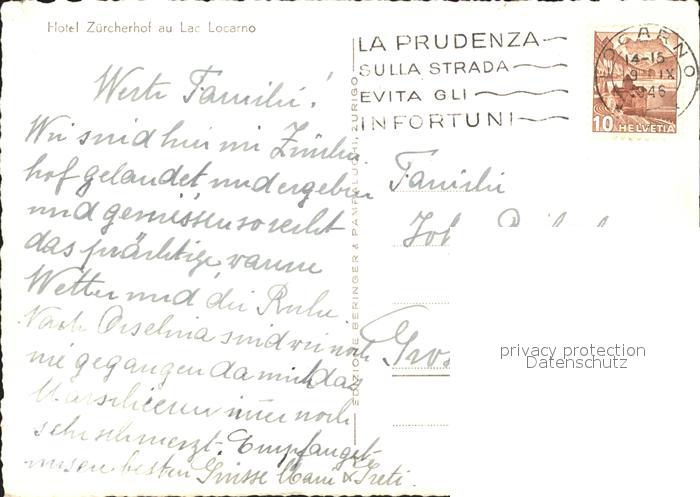 Hotel Zürcherhof au Lac Locarno
LA PRUDENZA
SULLA STRADA
EVITA GLI
INFORTUNI
LOCARNO
14-15
IX
1946
10 HELVETIA
EDIZIONE BERINGER & PAMPALUCHI, ZURIGO
Werte Familie!
Wir sind hier im Zürcher
hof gelandet, und
und geniessen so recht
das prächtige, warme
Wetter und die Ruhe
Nach Orselina sind wir noch
nie gegangen da mich das
immer noch
sehr schmerzt. Empfanget
unsere besten Grüsse
Familie
Joh
privacy protection
Datenschutz